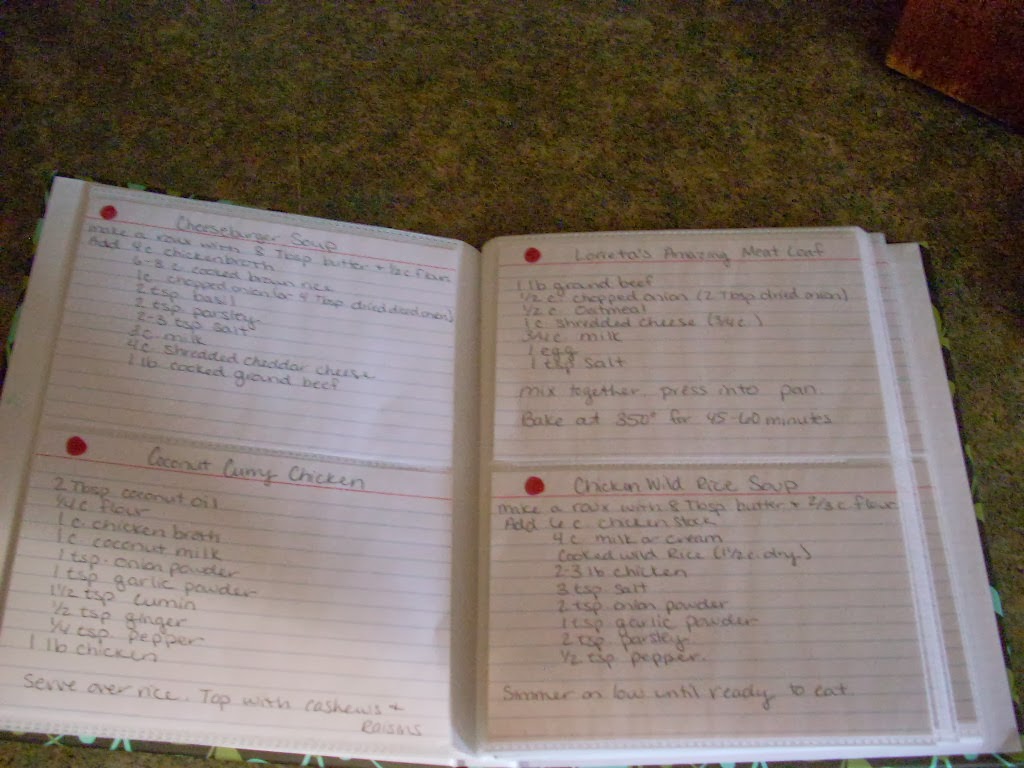 Cheeseburger Soup
make a roux with 8 Tbsp butter + 1/2 c flour
Add 4 c chicken broth
6-8 c. cooked brown rice
1 c chopped onion (or 4 Tbsp dried diced onion)
2 tsp basil
2 tsp parsley
2-3 tsp salt
3 c. milk
4 c. shredded cheddar cheese
1 lb cooked ground beef
Coconut Curry Chicken
2 Tbsp coconut oil
1/4 c flour
1 c chicken broth
1 c coconut milk
1 tsp onion powder
1 tsp garlic powder
1 1/2 tsp cumin
1/2 tsp ginger
1/4 tsp pepper
1 lb chicken
Serve over rice. Top with cashews +
Raisins
Amazing Meat Loaf
1 lb ground beef
1/2 c chopped onion (2 Tbsp dried onion)
1/2 c. oatmeal
1 c. shredded cheese (3/4 c.)
3/4 c milk
1 egg
1 tsp salt
mix together, press into pan.
Bake at 350° for 45-60 minutes
Chicken Wild Rice Soup
make a roux with 8 Tbsp butter + 2/3 c. flour
Add 6 c chicken stock
4 c. milk or cream
Cooked Wild Rice (1 1/2 c. dry)
2-3 lb chicken
3 tsp salt
2 tsp onion powder
1 tsp garlic powder
2 tsp parsley
1/2 tsp pepper.
Simmer on low until ready to eat